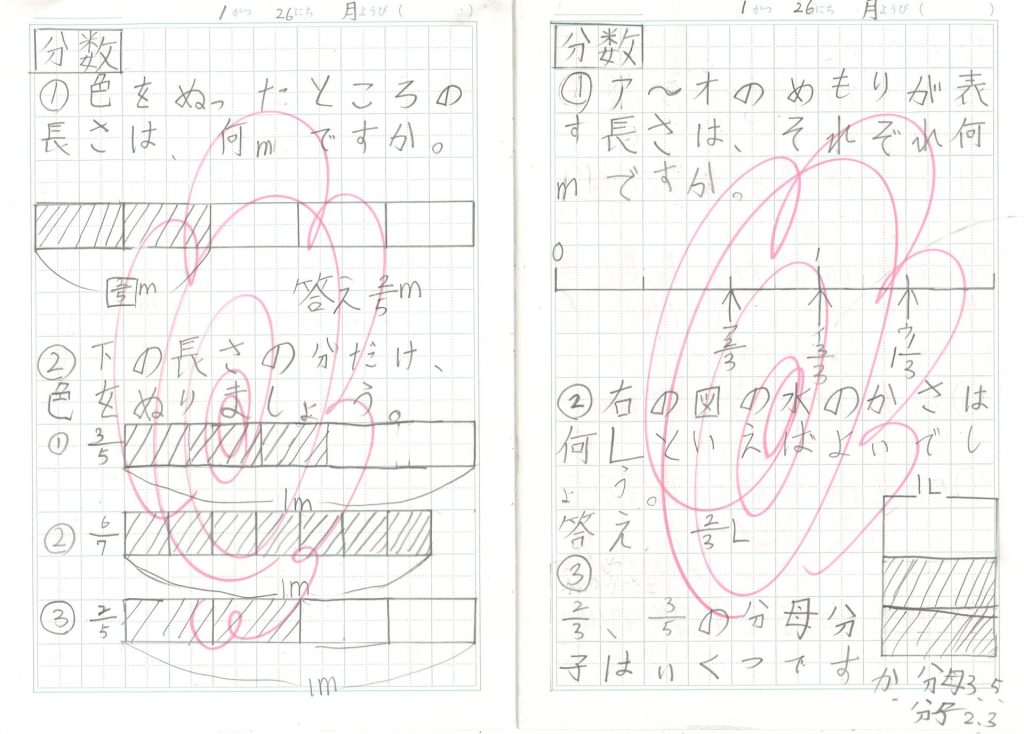 1がつ 26にち 月ようび( )
分数
①色をぬったところの
長さは、何mですか。
2/5 m
答え 2/5 m
②下の長さの分だけ、
色をぬりましょう。
① 3/5
1m
② 6/7
1m
③ 2/5
1m
1がつ 26にち 月ようび( )
分数
①ア〜オのめもりが表
す長さは、それぞれ何
mですか。
0 1
ア イ ウ
2/3 3/3 1 1/3
②右の図の水のかさは
何Lといえばよいでし
ょう。
1L
答え 2/3 L
③
2/3、3/5の分母分
子はいくつです
か、分母3、5
分子2.3